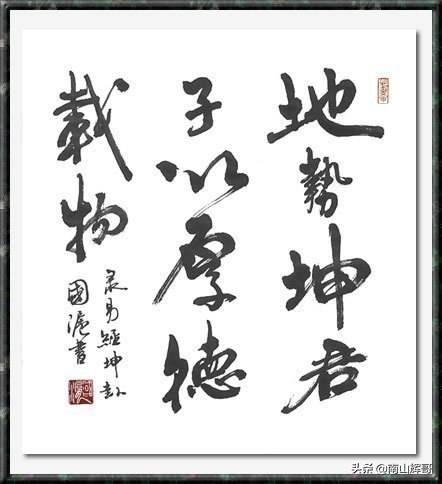 地勢坤君
子以厚德
載物
录易經坤卦
國滬書
头条@南山辉哥